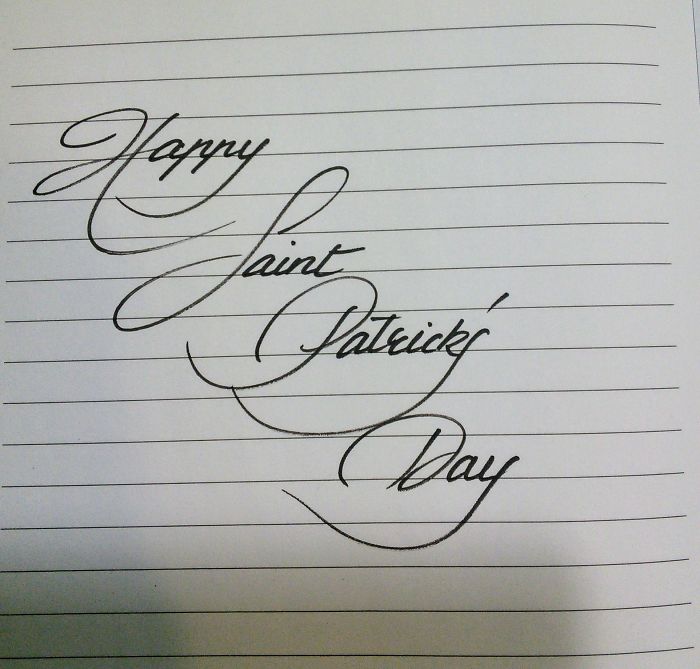 Happy
Saint
Patrick's
Day